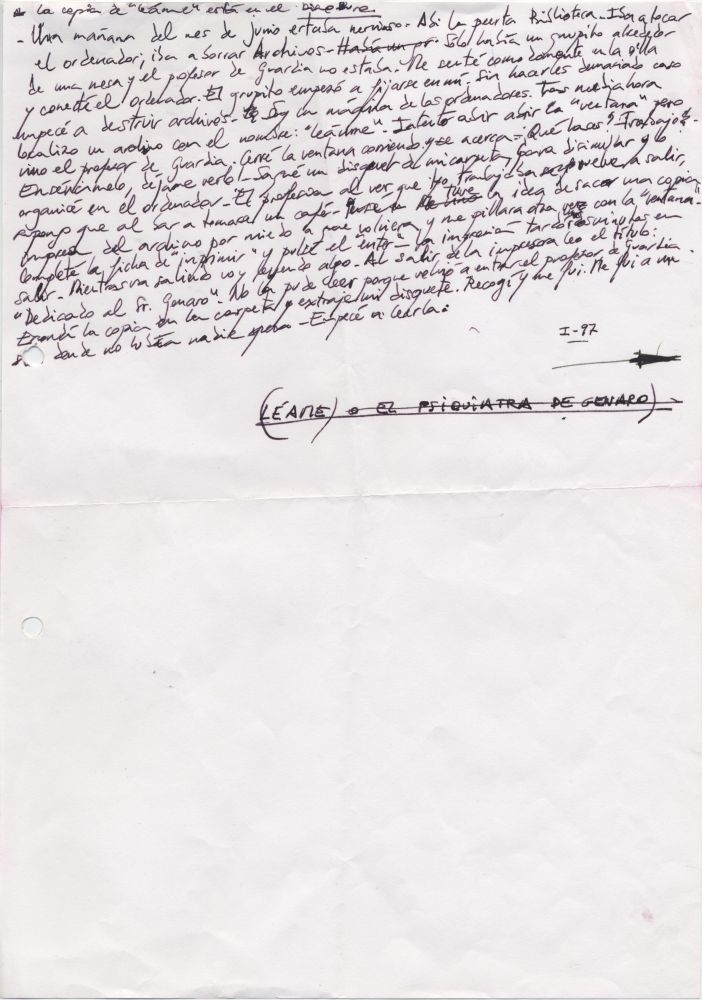 - La copia de "Léame" está en el
- Una mañana del mes de junio estaba nervioso. Abí la puerta Biblioteca. Iba a tocar
el ordenador; iba a borrar Archivos. Había un gr. Solo había un grupito alrededor
de una mesa y el profesor de Guardia no estaba. Me senté cómodamente en la silla
y conecté el ordenador. El grupito empezó a fijarse en mí. Sin hacerles demasiado caso
empecé a destruir archivos. Soy la máquina de los ordenadores. Tras media hora
localizo un archivo con el nombre: "Léame". Intento abrir abrir la "ventana" pero
vino el profesor de guardia. Cerré la ventana corriendo y se acerca = Qué haces? Trabajo?
Enséñamelo, déjame verlo. Saqué un disquet de mi carpeta, para disimular y lo
organicé en el ordenador. El profesor al ver que yo, trabajo vuelve a salir,
supongo que al bar a tomarse un café. tuve la idea de sacar una copia
impresa del archivo por miedo a que volviera y me pillara otra vez con la "ventana".
Completé la ficha de "imprimir" y pulsé el intro. La impresión tardó minutos en
salir. Mientras iba saliendo voy leyendo algo. Al salir, de la impresora leo el título:
"Dedicado al Sr. Genaro". No la pude leer porque volvió a entrar el profesor de Guardia.
la copia en la carpeta y extraje mi disquete. Recogí y me fui. Me fui a un
donde no había nadie. Empecé a leerla:
I-97
(LÉAME) o EL PSIQUIATRA DE GENARO)